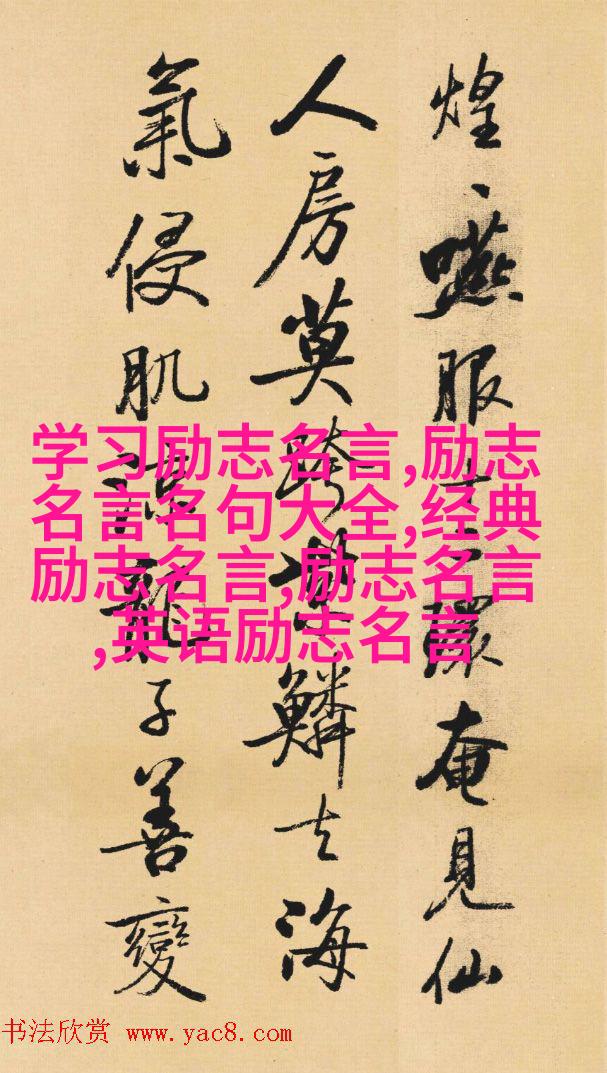 煌、嚥服十二環奄見仙
人房莫跨紫鱗去海
氣侵肌涼龍子善變
学习励志名言,励志
名言名句大全,经典
励志名言,励志名言
,英语励志名言
书法欣赏 www.yac8.com